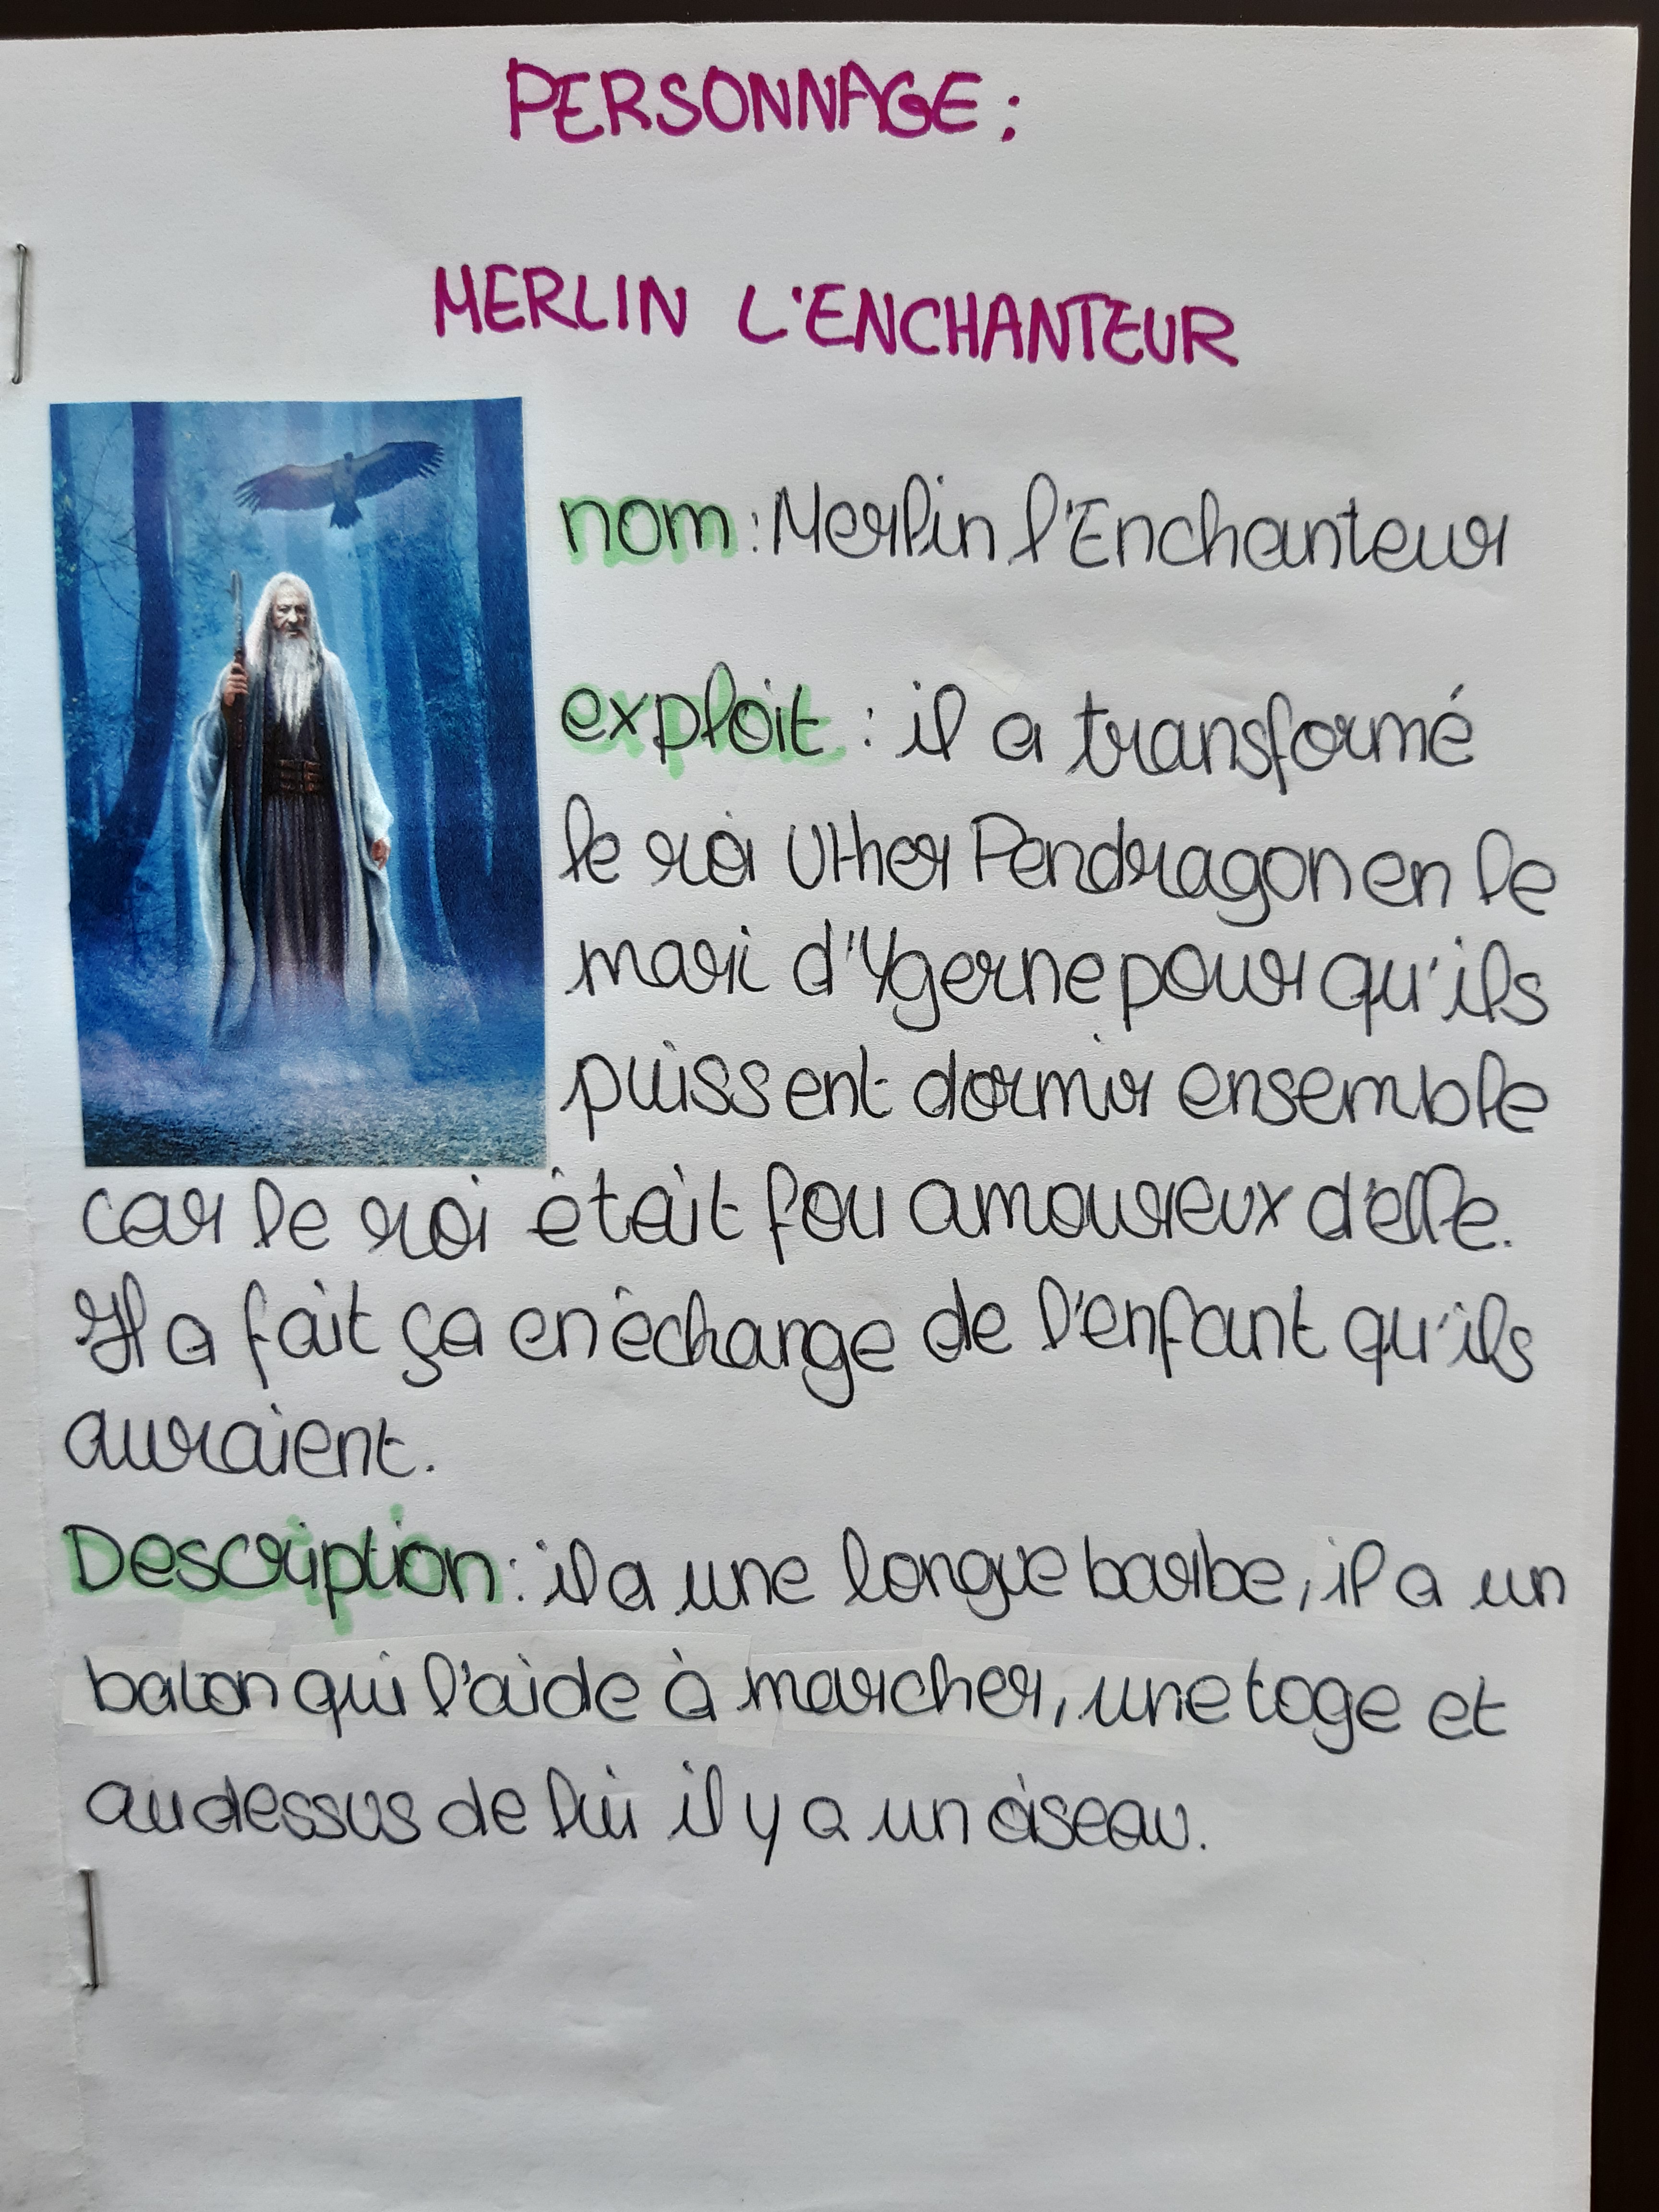 PERSONNAGE :
MERLIN L'ENCHANTEUR
nom : Merlin l'Enchanteur
exploit : il a transformé
le roi Uther Pendragon en le
mari d'Ygerne pour qu'ils
puissent dormir ensemble
car le roi était fou amoureux d'elle.
Il a fait ça en échange de l'enfant qu'ils
auraient.
Description : il a une longue barbe, il a un
baton qui l'aide à marcher, une toge et
au dessus de lui il y a un oiseau.